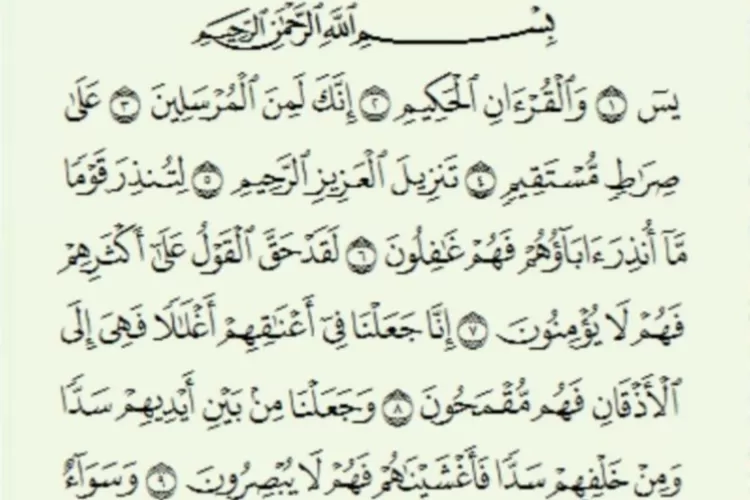 بِسْمِ اللَّهِ الرَّحْمَٰنِ الرَّحِيمِ
يسٓ ١ وَالْقُرْءَانِ الْحَكِيمِ ٢ إِنَّكَ لَمِنَ الْمُرْسَلِينَ ٣ عَلَىٰ
صِرَاطٍ مُّسْتَقِيمٍ ٤ تَنزِيلَ الْعَزِيزِ الرَّحِيمِ ٥ لِتُنذِرَ قَوْمًا
مَّآ أُنذِرَ ءَابَآؤُهُمْ فَهُمْ غَٰفِلُونَ ٦ لَقَدْ حَقَّ الْقَوْلُ عَلَىٰٓ أَكْثَرِهِمْ
فَهُمْ لَا يُؤْمِنُونَ ٧ إِنَّا جَعَلْنَا فِىٓ أَعْنَٰقِهِمْ أَغْلَٰلًا فَهِىَ إِلَى
الْأَذْقَانِ فَهُم مُّقْمَحُونَ ٨ وَجَعَلْنَا مِنۢ بَيْنِ أَيْدِيهِمْ سَدًّا
وَمِنْ خَلْفِهِمْ سَدًّا فَأَغْشَيْنَٰهُمْ فَهُمْ لَا يُبْصِرُونَ ٩ وَسَوَآءٌ